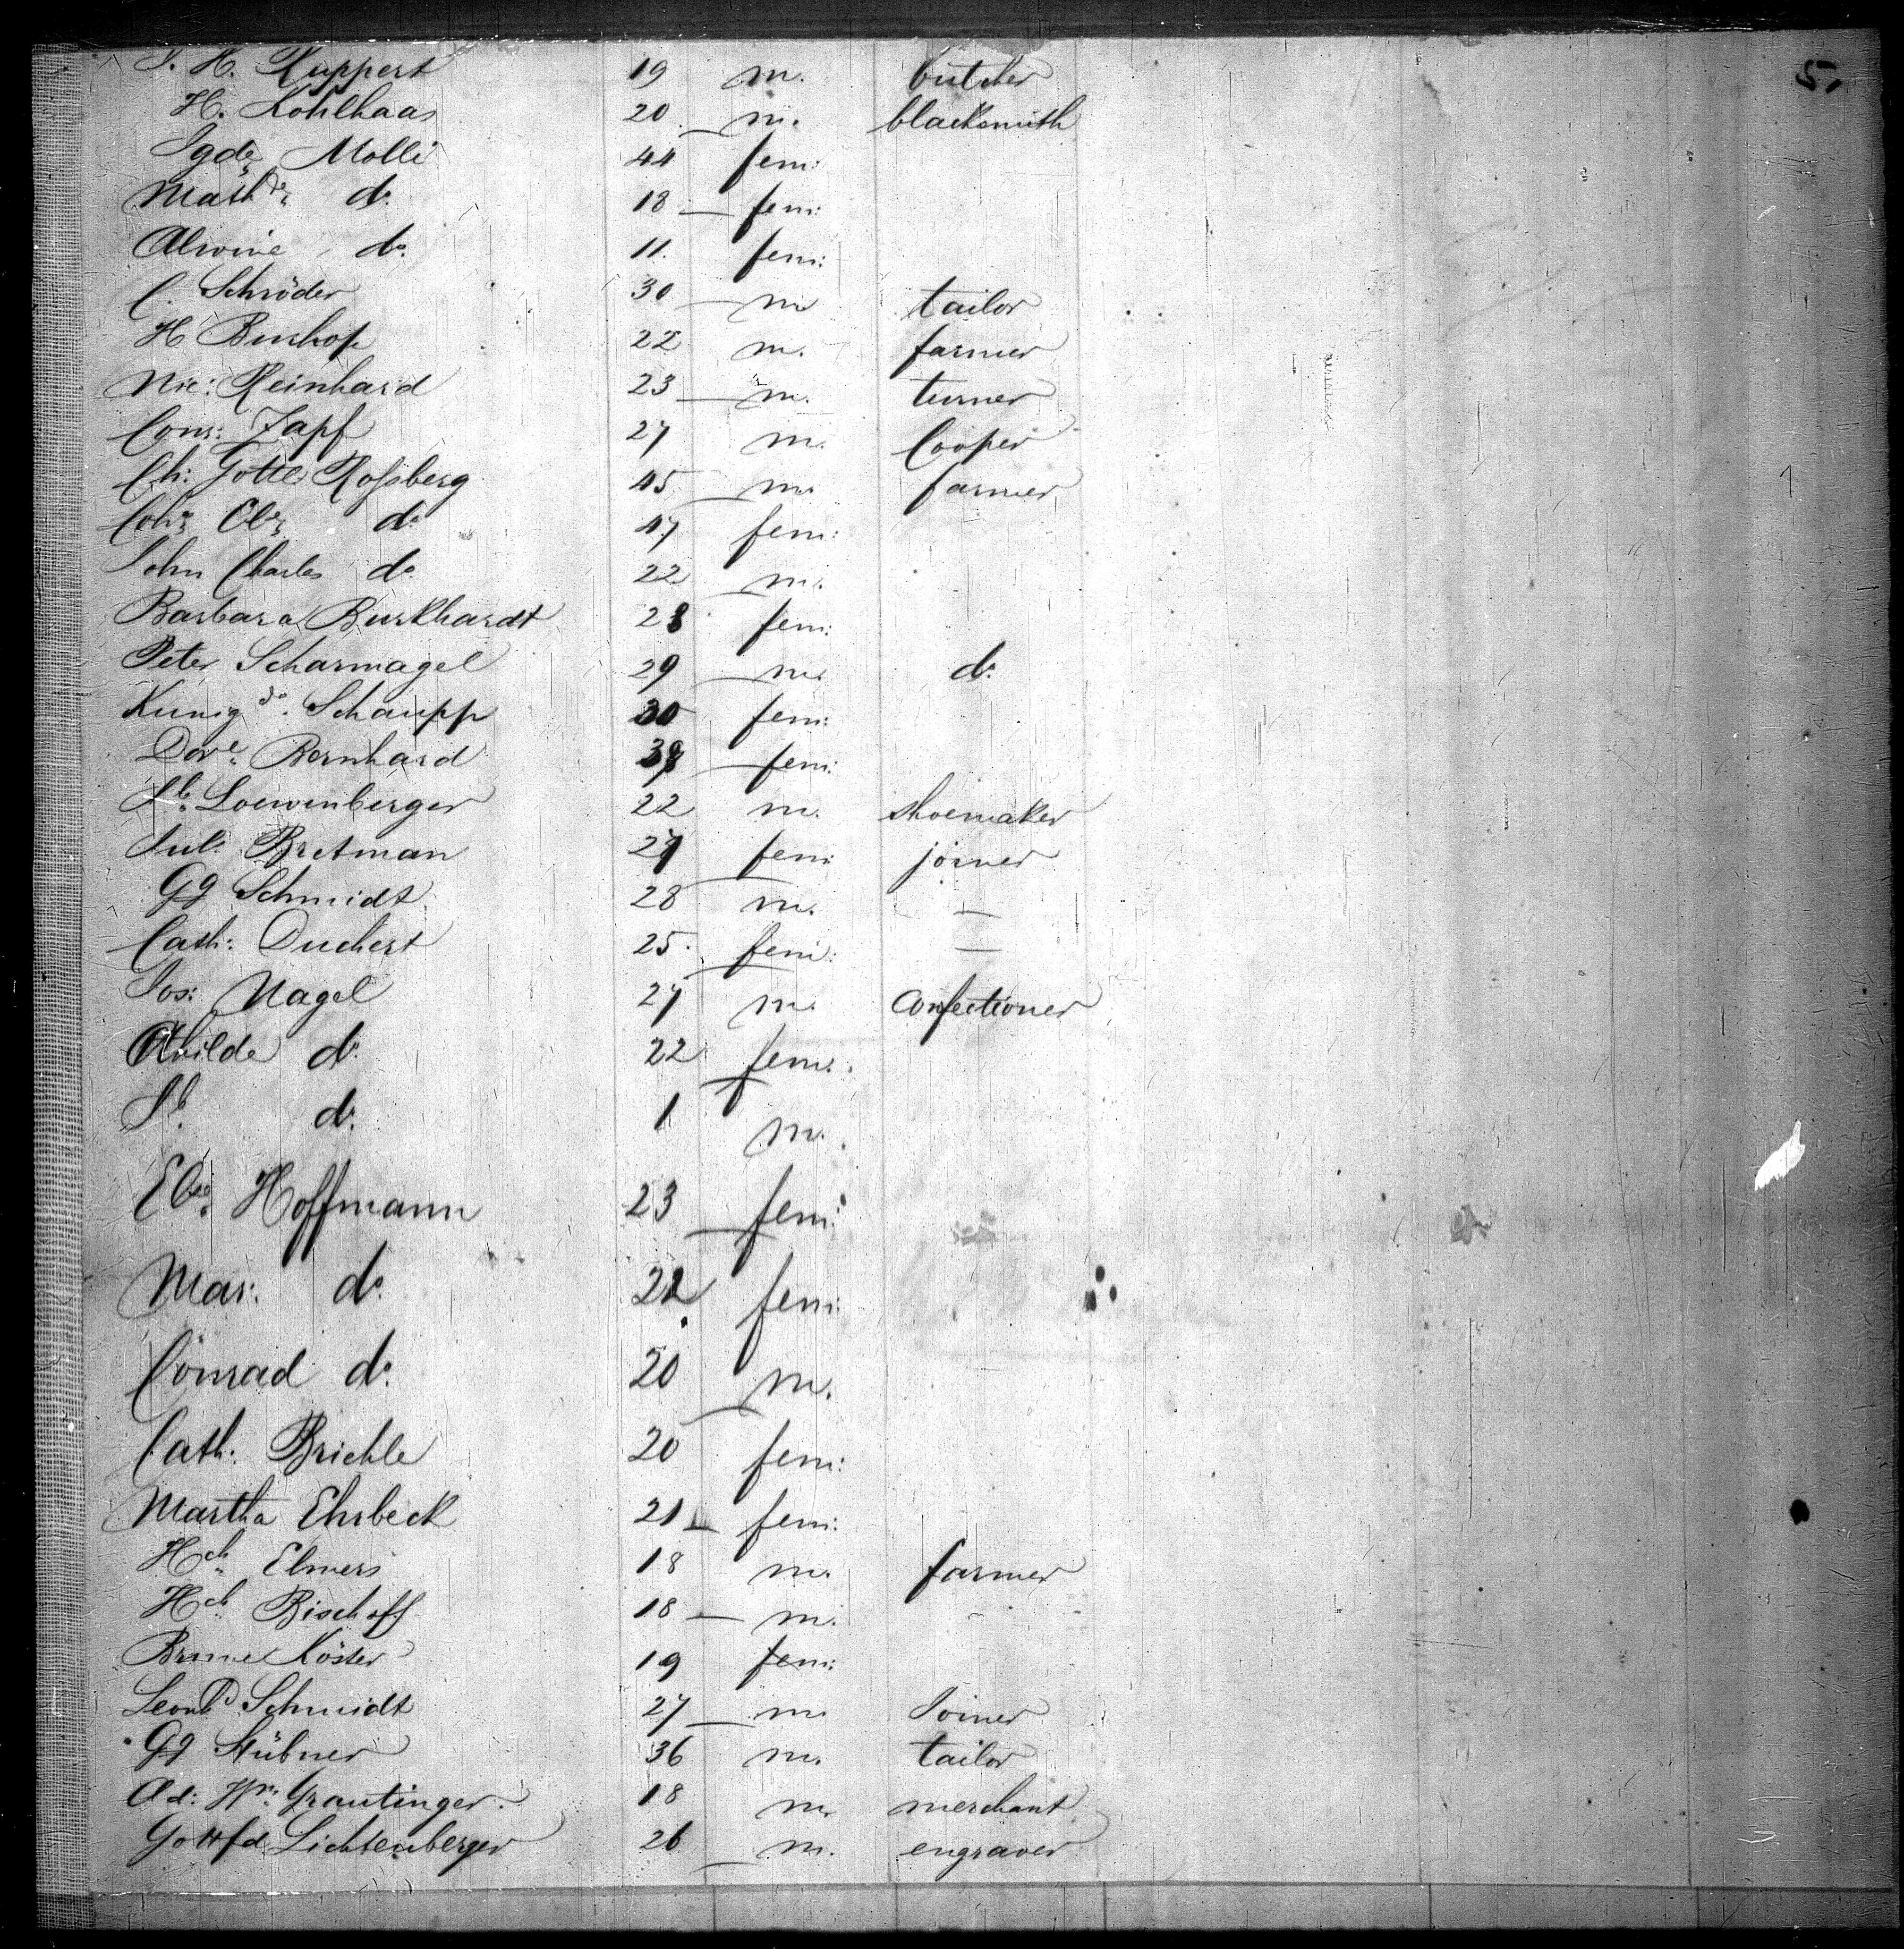 J. H. Ruppert 19 m. butcher
H. Kohlhaas 20 m. blacksmith
Igde Molli 44 fem:
Mathde do. 18 fem:
Alwine do. 11. fem:
C. Schröder 30 m tailor
H Bushop 22 m. farmer
Nic: Reinhard 23 m. turner
Conr: Zapf 27 m. Cooper
Ch: Gottl Rossberg 45 m. farmer
do 47 fem:
John Charles do 22 m.
Barbara Burkhardt 28 fem:
Peter Scharnagel 29 m. do.
Kunigde. Schaupp 30 fem:
Dore. Bernhard 39 fem:
Lb. Loewenberger 22 m. shoemaker
Jul: Bretman 27 fem: joiner
Gg Schmidt 28 m. —
Cath: Duchert 25. fem: —
Jos: Nagel 27 m. Confectioner
do. 22 fem.
Lb. do. 1 m.
Else. Hoffmann 23 fem:
Mar: do. 22 fem:
Conrad do. 20 m.
Cath: Brichle 20 fem:
Martha Ehrbeck 21 fem:
Hch. Elmers 18 m. farmer
Hch. Bischoff 18 m.
Köster 19 fem:
Leonhd Schmidt 27 m Joiner
Gg Stübner 36 m. tailor
Ad: Wm: Grautinger. 18 m. merchant
Gottfd Lichtenberger 26 m. engraver